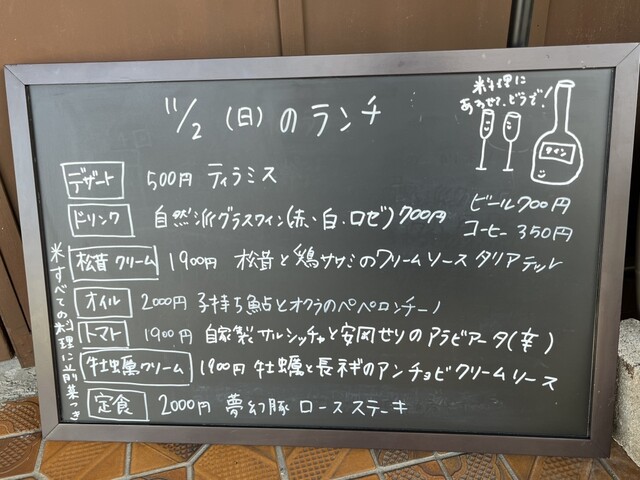 11/2 (日) のランチ
料理に
あわせて、どうぞ!
ワイン
デザート 500円 ティラミス
ドリンク 自然派グラスワイン(赤、白、ロゼ) 700円
ビール700円
コーヒー 350円
松茸クリーム 1900円 松茸と鶏ササミのクリームソース タリアテッレ
オイル 2000円 子持ち鮎とオクラのペペロンチーノ
トマト 1900円 自家製サルシッチャと安岡せりのアラビアータ(辛)
牡蠣クリーム 1900円 牡蠣と長ネギのアンチョビクリームソース
定食 2000円 夢幻豚 ロースステーキ
米すべての料理に前菜つき